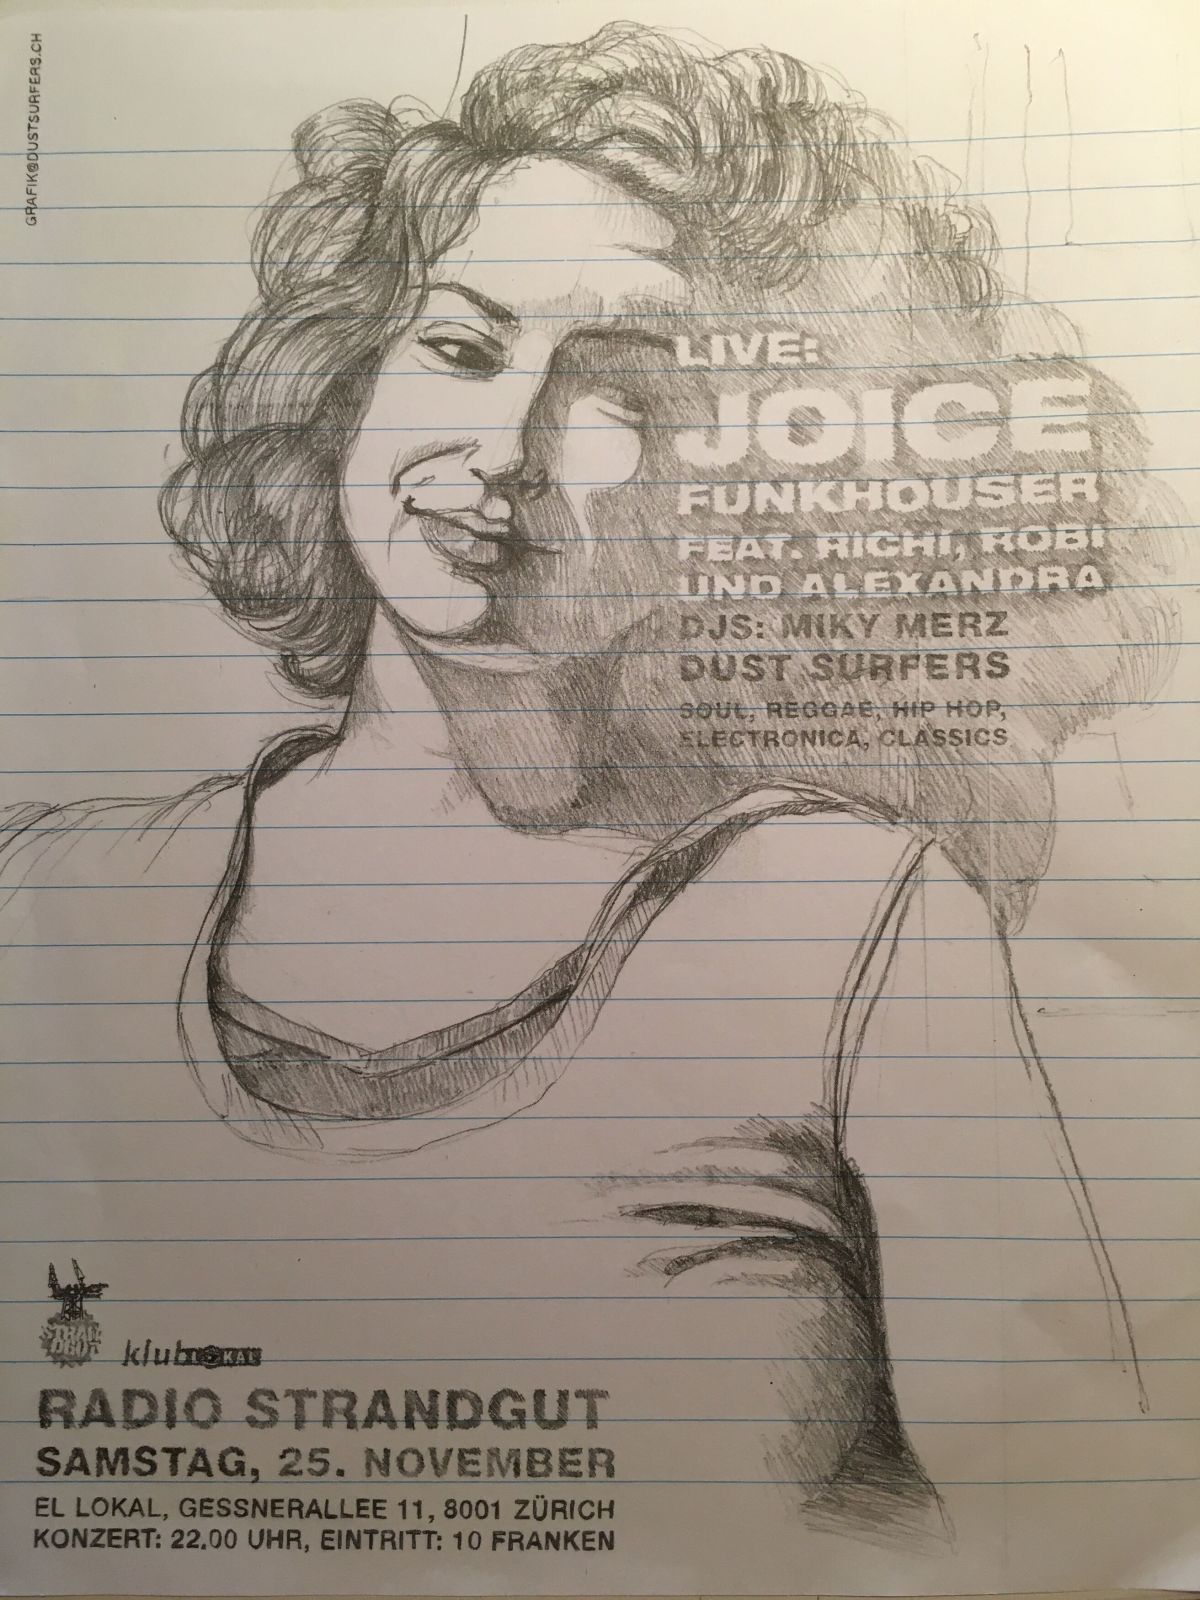 GRAFIK@DUSTSURFERS.CH
LIVE:
JOICE
FUNKHOUSER
FEAT. RICHI, ROBI
UND ALEXANDRA
DJS: MIKY MERZ
DUST SURFERS
SOUL, REGGAE, HIP HOP,
ELECTRONICA, CLASSICS
STRAN
DGUT
klub LOKAL
RADIO STRANDGUT
SAMSTAG, 25. NOVEMBER
EL LOKAL, GESSNERALLEE 11, 8001 ZÜRICH
KONZERT: 22.00 UHR, EINTRITT: 10 FRANKEN